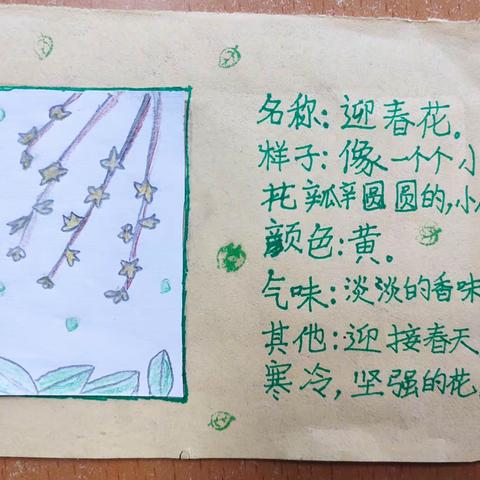 名称：迎春花。
样子：像一个个小
花瓣圆圆的，小
颜色：黄。
气味：淡淡的香味
其他：迎接春天
寒冷，坚强的花